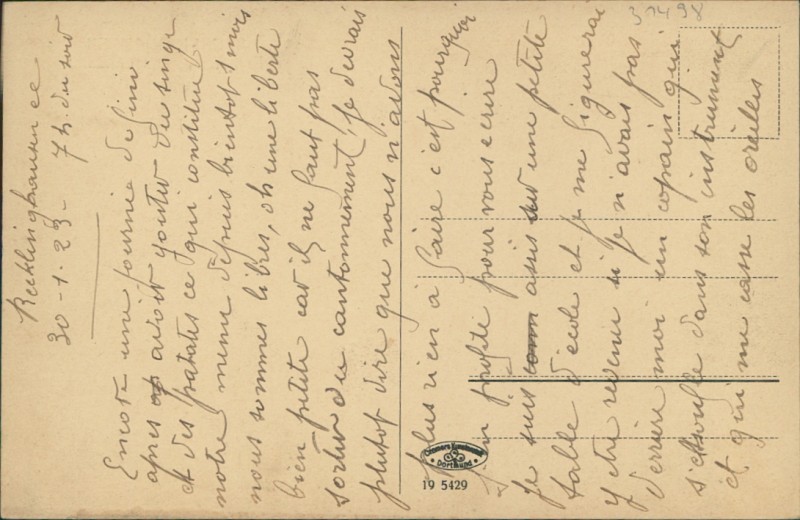 Recklinghausen ce
30-1.23- 7h. du soir
Encore une journée de fini
apres avoir goutér du singe
et des patates ce qui constitue
notre meme depuis bientot 1 mois
nous sommes libres, oh une liberté
bien petite car il ne faut pas
sortir du cantonnement, je devrais
plutot dire que nous n'avons
plus rien à faire c'est pourquoi
j'en profite pour vous ecrire
Je suis assis sur une petite
table d'ecole et je me figurerai
y etre revenu si je n'avais pas
derrière moi un copain qui
s'essouffle dans son instrument
et qui me casse les oreilles
31498
Cramers Kunstanstalt
Dortmund
19 5429